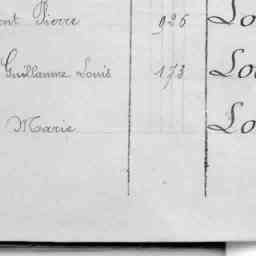 ont Pierre 926 Lo
Guillaume Louis 173 Lo
Marie Lo